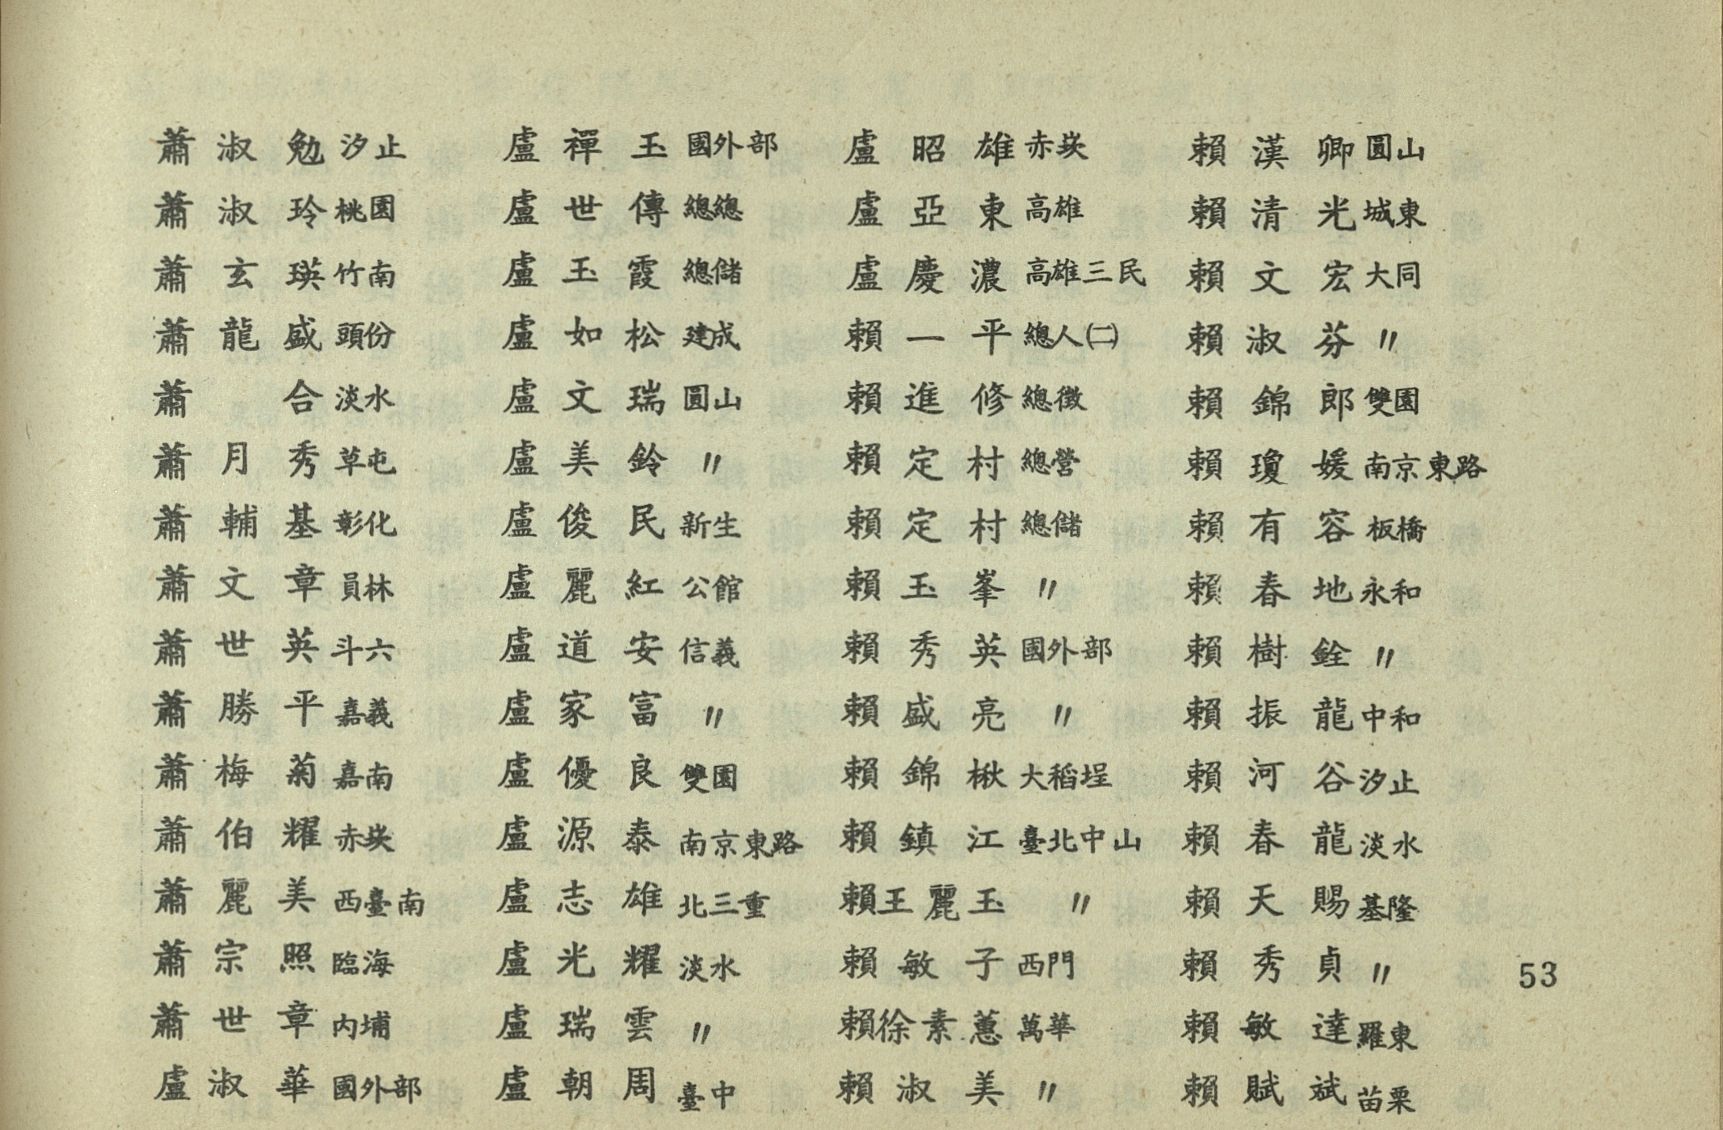 蕭淑勉汐止
蕭淑玲桃園
蕭玄瑛竹南
蕭龍盛頭份
蕭合淡水
蕭月秀草屯
蕭輔基彰化
蕭文章員林
蕭世英斗六
蕭勝平嘉義
蕭梅菊嘉南
蕭伯耀赤崁
蕭麗美西臺南
蕭宗照臨海
蕭世章内埔
盧淑華國外部
盧禪玉國外部
盧世傳總總
盧玉霞總儲
盧如松建成
盧文瑞圓山
盧美鈴〃
盧俊民新生
盧麗紅公館
盧道安信義
盧家富〃
盧優良雙園
盧源泰南京東路
盧志雄北三重
盧光耀淡水
盧瑞雲〃
盧朝周臺中
盧昭雄赤崁
盧亞東高雄
盧慶濃高雄三民
賴一平總人㈡
賴進修總徵
賴定村總營
賴定村總儲
賴玉峯〃
賴秀英國外部
賴盛亮〃
賴錦楸大稻埕
賴鎮江臺北中山
賴王麗玉〃
賴敏子西門
賴徐素蕙萬華
賴淑美〃
賴漢卿圓山
賴清光城東
賴文宏大同
賴淑芬〃
賴錦郎雙園
賴瓊媛南京東路
賴有容板橋
賴春地永和
賴樹銓〃
賴振龍中和
賴河谷汐止
賴春龍淡水
賴天賜基隆
賴秀貞〃
賴敏達羅東
賴賦斌苗栗
53